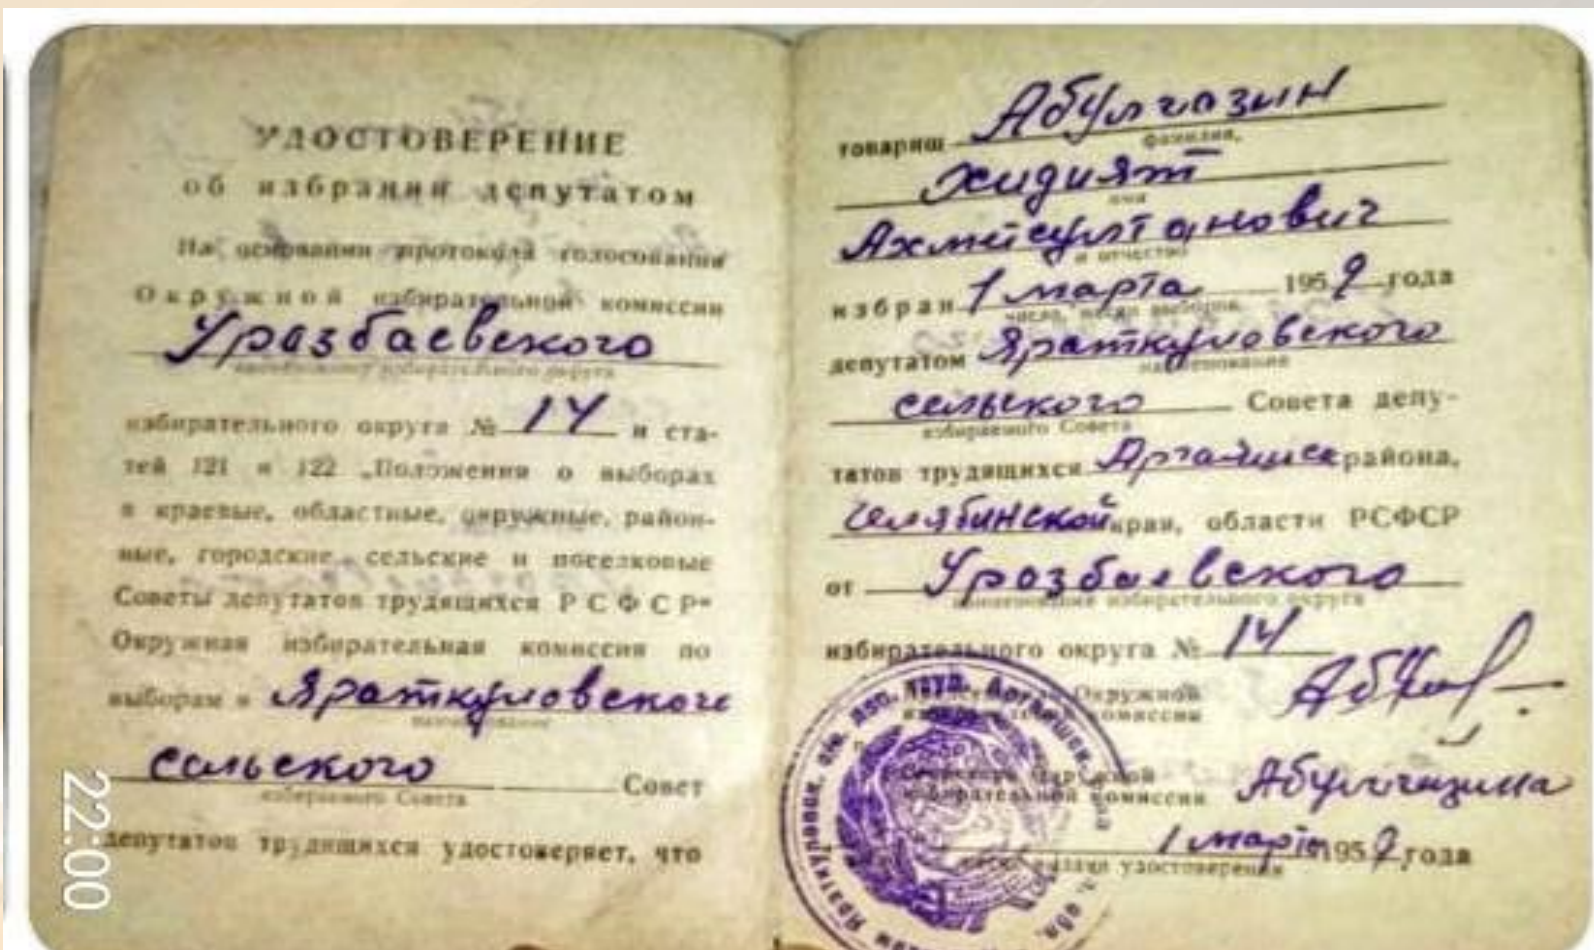 УДОСТОВЕРЕНИЕ
об избрании депутатом
На основании протокола голосования
Окружной избирательной комиссии
Уразбаевского
наименование избирательного округа
избирательного округа № 14 и ста-
тей 121 и 122 „Положения о выборах
в краевые, областные, окружные, район-
ные, городские, сельские и поселковые
Советы депутатов трудящихся РСФСР"
Окружная избирательная комиссия по
выборам в Яраткуловского
наименование
сельского Совет
избираемого Совета
депутатов трудящихся удостоверяет, что
товарищ Абулгазин
фамилия,
Хидият
имя
Ахметсултанович
и отчество
избран 1 марта 1959 года
число, месяц выборов
депутатом Яраткуловского
наименование
сельского Совета депу-
избираемого Совета
татов трудящихся Аргаяшск района,
Челябинской края, области РСФСР
от Уразбаевского
наименование избирательного округа
избирательного округа № 14
Председатель Окружной
избирательной комиссии
Секретарь Окружной
избирательной комиссии Абулгазина
1 марта 1959 года
число выдачи удостоверения
22:00